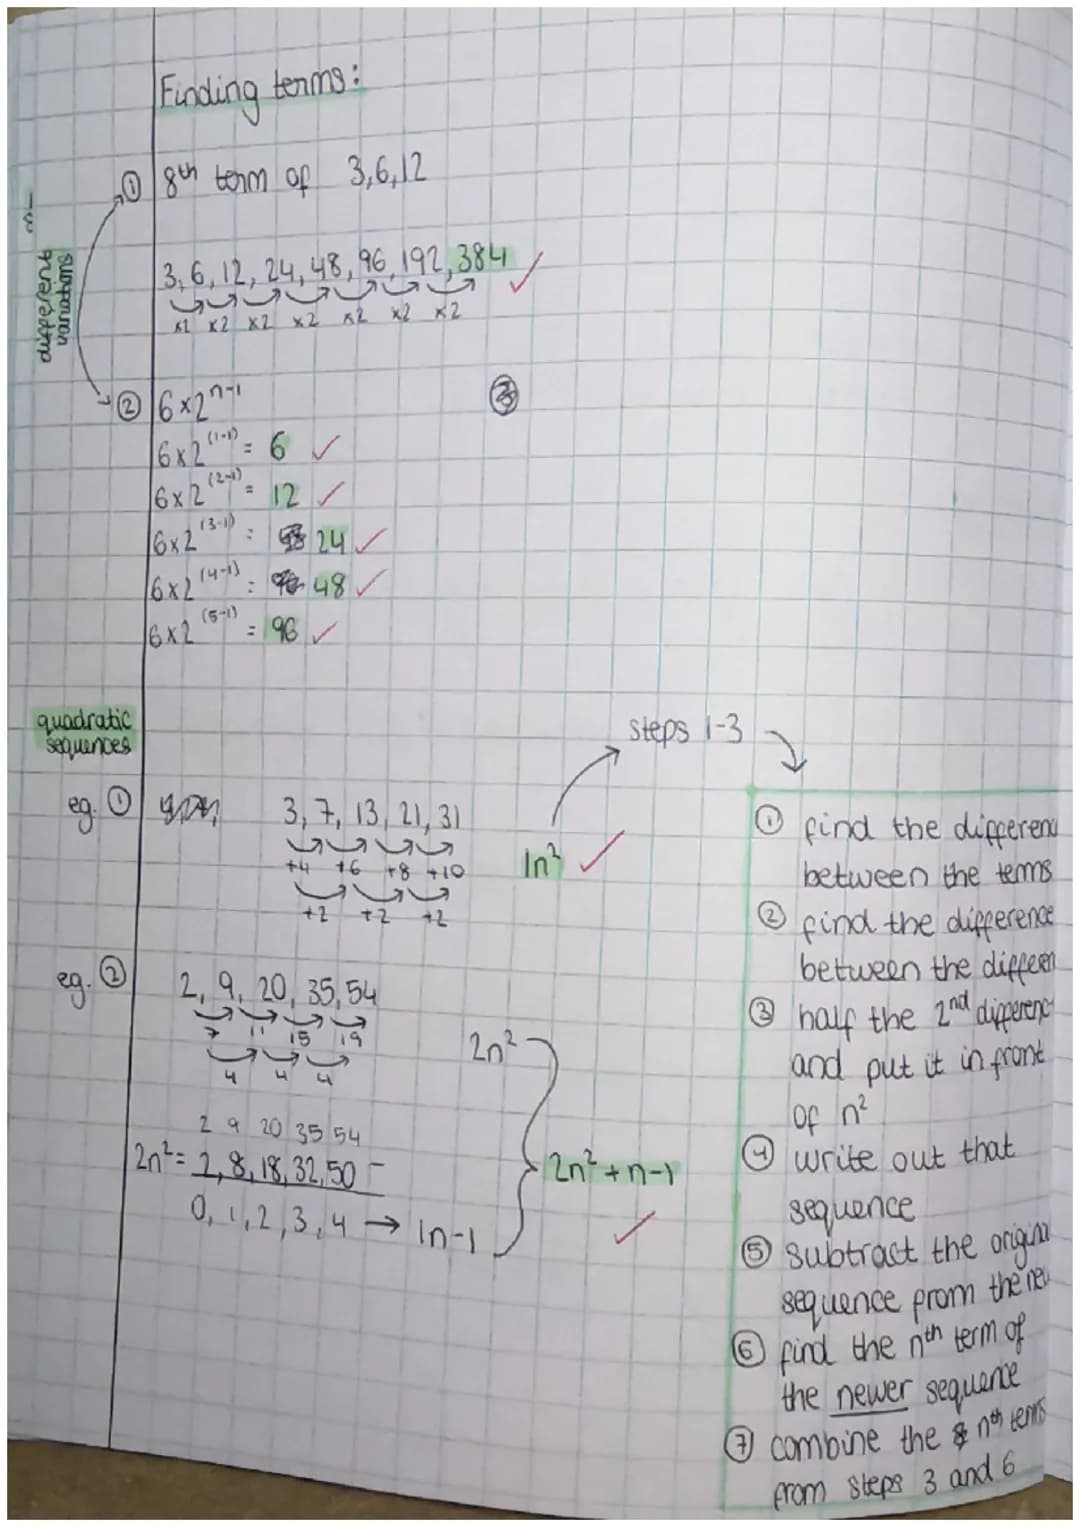 Finding terms:
① 8th term of 3,6,12
different
variations
3, 6, 12, 24, 48, 96, 192, 384 ✓
x2 x2 x2 x2 x2 x2 x2
② 6×2ⁿ⁻¹
6×2⁽¹⁻¹⁾ = 6 ✓
6×2⁽²⁻¹⁾ = 12 ✓
6×2⁽³⁻¹⁾ = 24 ✓
6×2⁽⁴⁻¹⁾ = 48 ✓
6×2⁽⁵⁻¹⁾ = 96 ✓
quadratic
sequences
steps 1-3
eg. ① 3, 7, 13, 21, 31
+4 +6 +8 +10
+2 +2 +2
1n² ✓
eg. ② 2, 9, 20, 35, 54
7 11 15 19
4 4 4
2n²
2 9 20 35 54
2n² = 2, 8, 18, 32, 50 -
0, 1, 2, 3, 4 → 1n-1
2n²+n-1
✓
① find the differenc
between the terms
② find the difference
between the differen
③ half the 2nd differenc
and put it in front
of n²
④ write out that
sequence
⑤ subtract the origina
sequence from the new
⑥ find the nth term of
the newer sequence
⑦ combine the nth terms
from steps 3 and 6